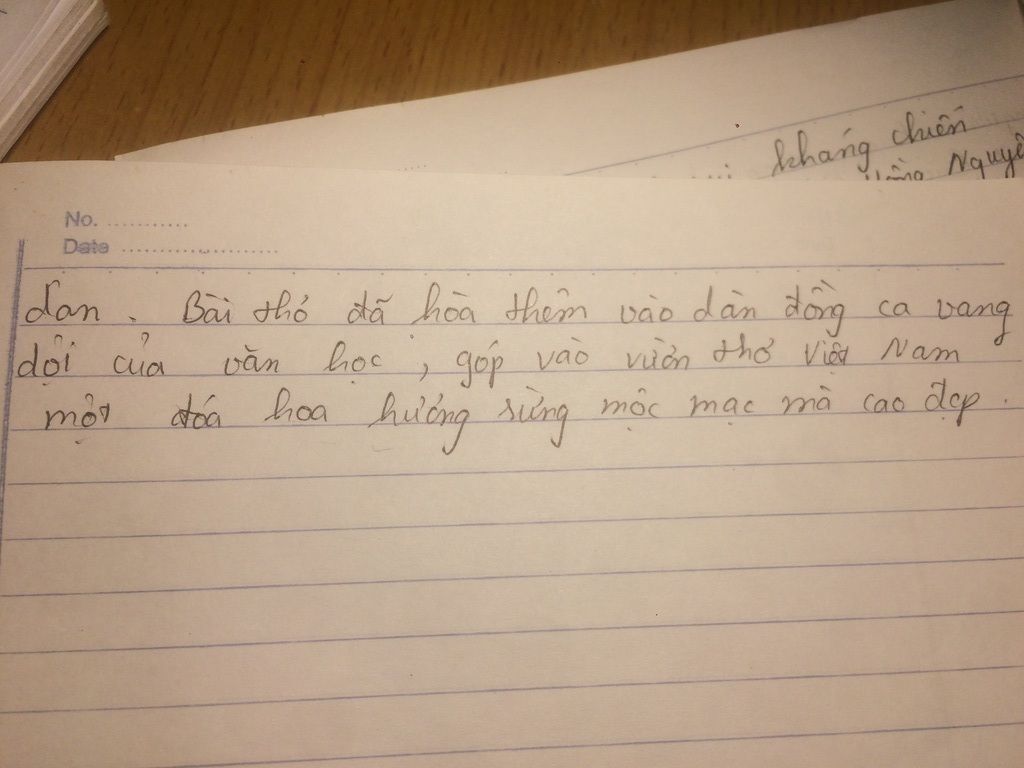 kháng chiến
Nguyê
No. ...........
Date ......................
dan. Bài thơ đã hòa thêm vào dàn đồng ca vang
dội của văn học, góp vào vườn thơ Việt Nam
một đóa hoa hương rừng mộc mạc mà cao đẹp.